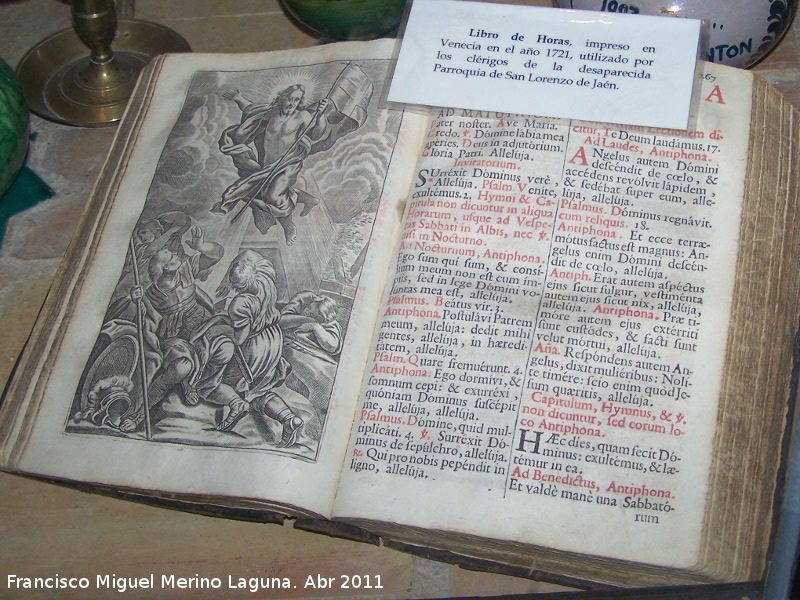 Libro de Horas, impreso en
Venecia en el año 1721, utilizado por
los clérigos de la desaparecida
Parroquia de San Lorenzo de Jaén.
267
AD MATUTINUM
Pater noster. Ave Maria.
Credo. ℣. Dómine lábia mea
apéries. Deus in adjutórium.
Glória Patri. Allelúja.
Invitatorium.
SUrréxit Dóminus verè,
Allelúja. Psalm. Venite,
exultémus. 2. Hymni & Ca-
pitula non dicuntur in aliqua
Horarum, usque ad Vespe-
ras Sabbati in Albis, nec ℣.
nisi in Nocturno.
Ad Nocturnum, Antiphona.
Ego sum qui sum, & consí-
lium meum non est cum ím-
piis, sed in lege Dómini vo-
lúntas mea est, allelúja.
Psalmus. Beátus vir. 3.
Antiphona. Postulávi Patrem
meum, allelúja: dedit mihi
gentes, allelúja, in hæredi-
tátem, allelúja.
Psalm. Quare fremuérunt. 4.
Antiphona. Ego dormívi, &
somnum cepi: & exurréxi,
quóniam Dóminus suscépit
me, allelúja, allelúja.
Psalmus. Dómine, quid mul-
tiplicáti. 4. ℣. Surréxit Dó-
minus de sepúlchro, allelúja.
℟. Qui pro nobis pepéndit in
ligno, allelúja.
A
Lectionem di-
citur, Te Deum laudámus. 17.
Ad Laudes, Antiphona.
ANgelus autem Dómini
descéndit de cœlo, &
accédens revólvit lápidem,
& sedébat super eum, alle-
lúja, allelúja.
Psalmus. Dóminus regnávit.
cum reliquis. 18.
Antiphona. Et ecce terræ-
mótus factus est magnus: An-
gelus enim Dómini descén-
dit de cœlo, allelúja.
Antiph. Erat autem aspéctus
ejus sicut fulgur, vestiménta
autem ejus sicut nix, allelúja,
allelúja. Antiphona. Præ ti-
móre autem ejus extérriti
sunt custódes, & facti sunt
velut mórtui, allelúja.
Aña. Respóndens autem An-
gelus, dixit muliéribus: Nolí-
te timére: scio enim quòd Je-
sum quæritis, allelúja.
Capitulum, Hymnus, & ℣.
non dicuntur, sed eorum lo-
co Antiphona.
HÆc dies, quam fecit Dó-
minus: exultémus, & læ-
témur in ea.
Ad Benedictus, Antiphona.
Et valdè manè una Sabbató-
rum
Francisco Miguel Merino Laguna. Abr 2011